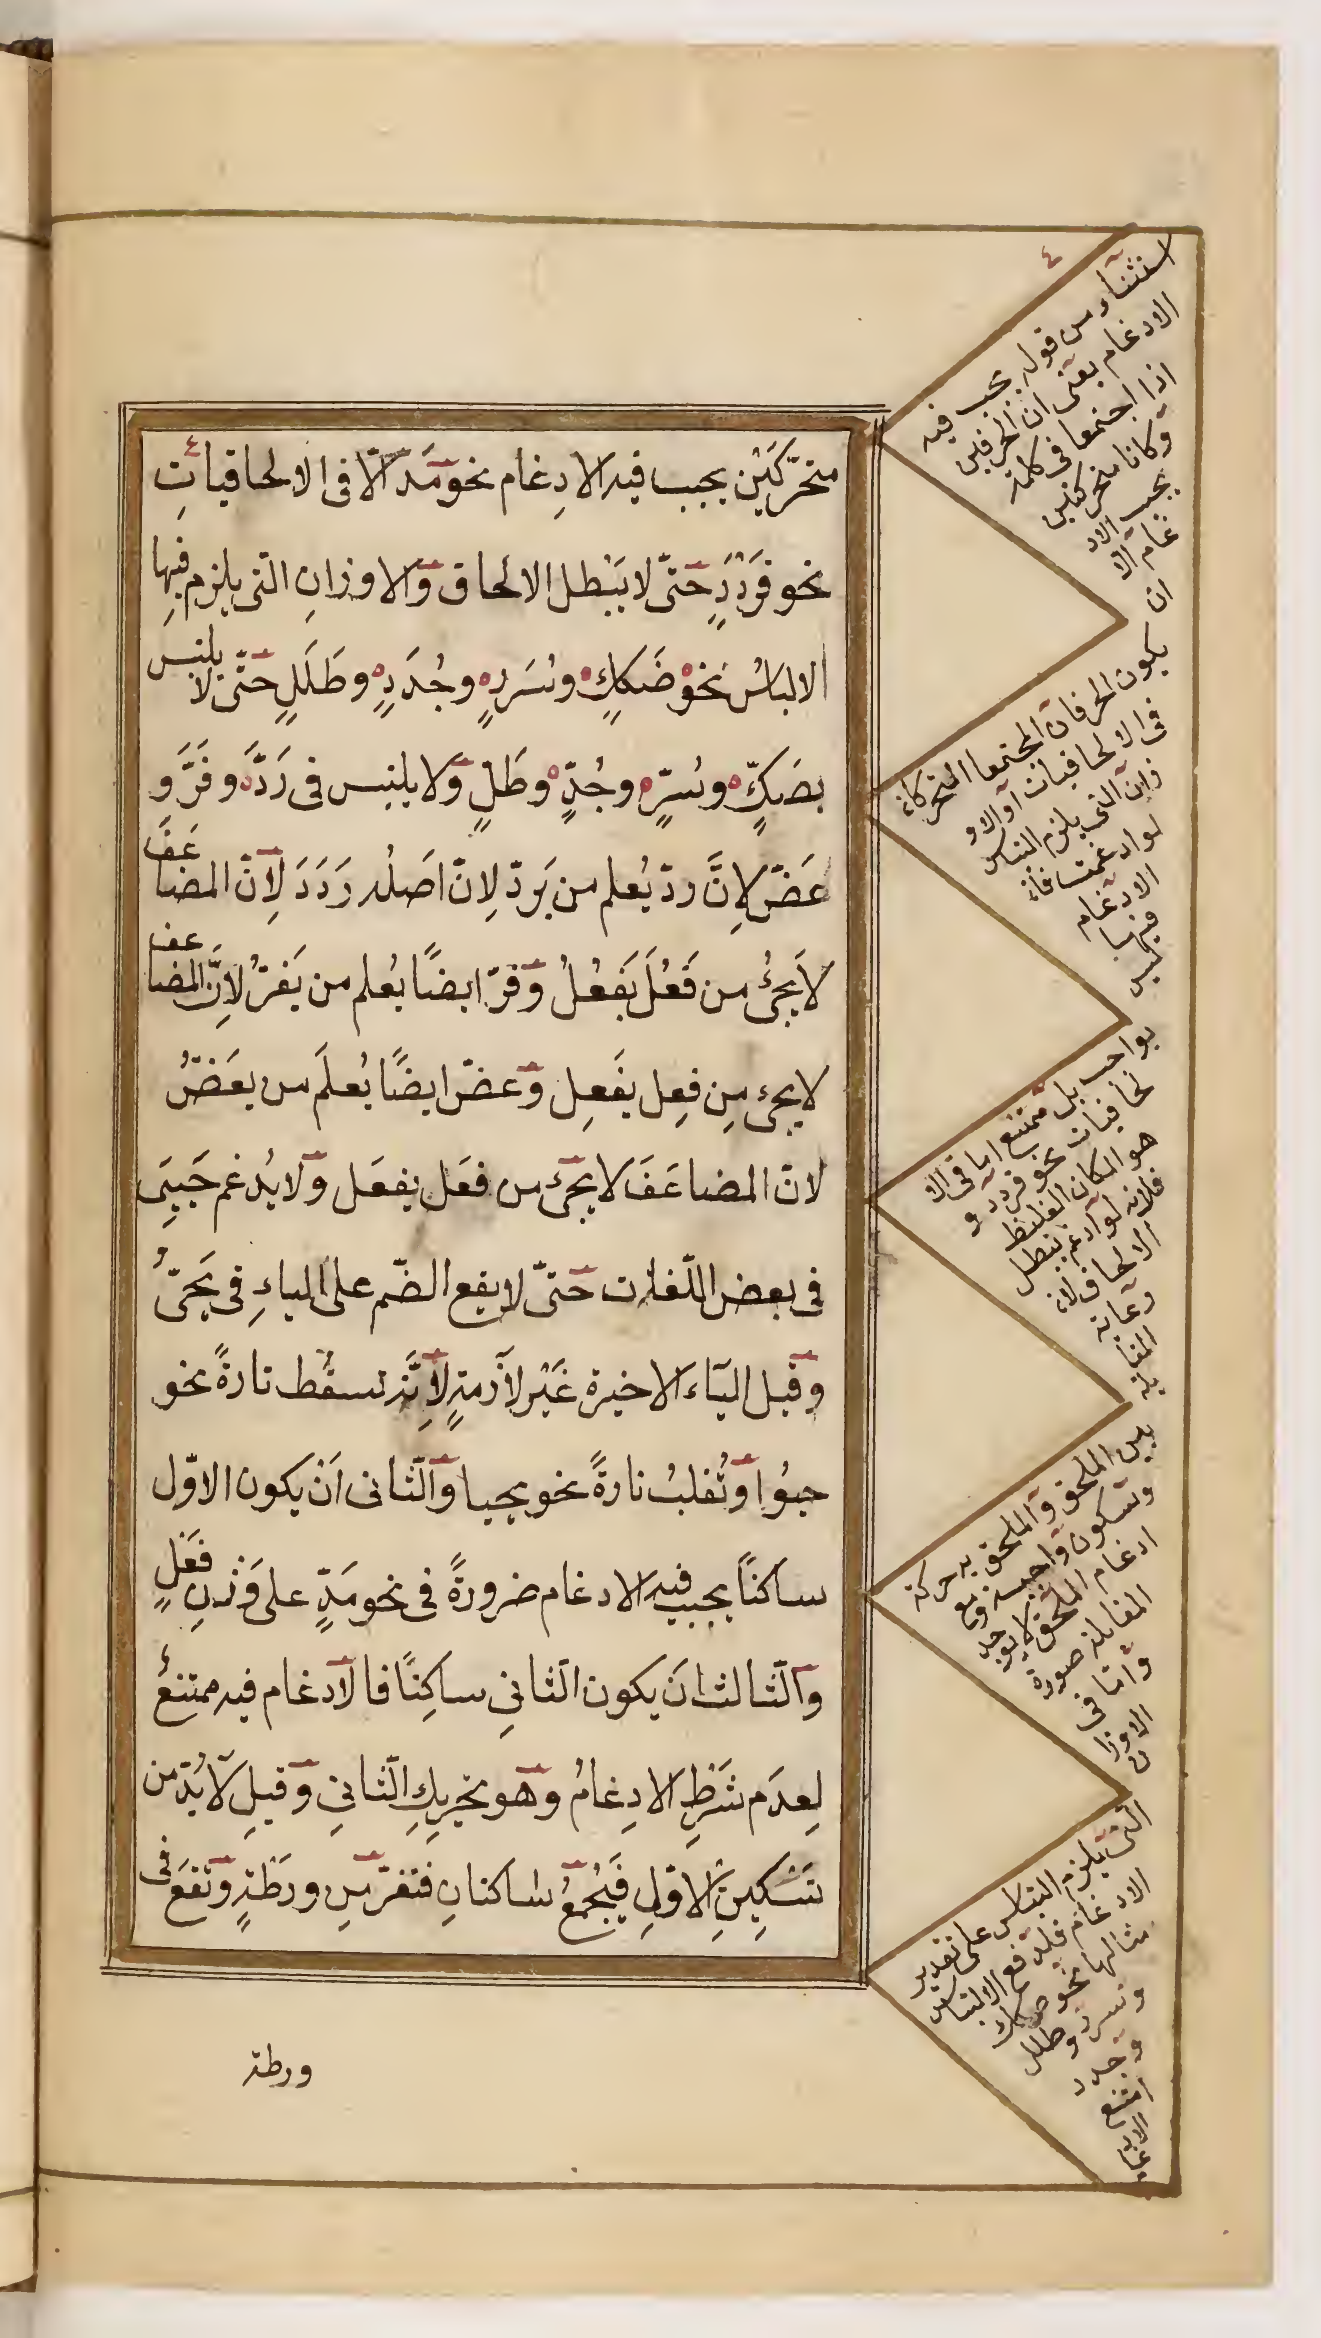 متحرّكَيْن يجب فيه الادِغام نحو مَدَّ الّا فى الالحاقياتِ
نحو قَرْدَدٍ حَتّى لا يَبْطل الالحاق وَالاوزانِ الّتى يلزم فيها
الالباسُ نحَوْ صَكَكٍ وسُرَرٍ وجُدَدٍ وطَلَلٍ حَتّى لا يلتبس
بصَكٍّ وسُرٍّ وجُدٍّ وطَلٍّ وَلا يلتبس فى رَدَّ وفَرَّ وَ
عَضّ لاِنَّ ردّ يُعلم من يَردّ لِانّ اَصلُه رَدَدَ لِاَنّ المضاعَفَ
لاَ يَجِئُ من فَعُلَ يَفعُلُ وَفرّ ايضًا يُعلم من يَفرّ لاِنَّ المضاعف
لا يجِئ مِن فِعِل يفَعِل وَعضّ ايضًا يُعلَم من يعَضّ
لانّ المضاعَفَ لا يجَئ من فعَل يفعَل وَلا يُدغم حَيِىَ
فى بعض اللّغات حَتىّ لا يقع الضّم على الياءِ فى يَحَىُّ
وَقيل اليَاء الاخيرة غَيْر لاَزمةٍ لاَنَّه تسقُط تارةً نحو
حيوُا وَتُقلبُ تارةً نحو يحيا وَالثانى اَنْ يكون الاوّل
ساكنًا يجب فيه الادغام ضرورةً فى نحو مَدٍّ على وَزنِ فَعَلٍ
وَالثالث اَن يكون الثانىِ ساكِنًا فالادغام فيه ممتنعُ
لعِدَم شَرْطِ الادِغامُ وَهو تحريكِ الثانىِ وَقيلِ لاَبُدّ من
تَسْكِينِ الاوّلِ فَيُجْمَعُ ساكنانِ فتفرّ مِن ورَطْةٍ وَتَقعَ فى
ورطة
٤
استثناء من قوله يجب فيه
الادغام يعنى ان الحرفين
اذا اجتمعا فى كلمة
وكانا متحركين
يجب الاد
غام الا
ان
يكون الحرفان المجتمعا المتحركان
فى الالحاقيات او الاو
زان التى يلزم التباس
لو ادغمت فان
الادغام
فيهما
ليس
بواجب بل ممتنع اما فى الا
لحاقيات نحو قردد و
هو المكان الغليظ
فلانه لو ادغم يبطل
الالحاق لان
رعاية
المقا
بلة
بين الملحق والملحق به حركة
وسكون واجبة ومع
ادغام الملحق لا يوجد
المقابلة صورة
واما فى
الاوزا
ن
التى يلزم التباس على تقدير
الادغام فلدفع الالتباس
مثالها نحو صكك
وسرر وطلل
وجدد
امتنع
الاد
غام